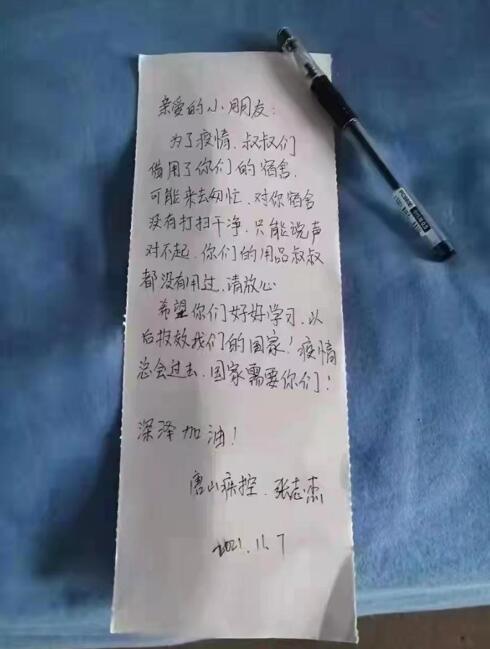 亲爱的小朋友：
为了疫情，叔叔们
借用了你们的宿舍，
可能来去匆忙，对你宿舍
没有打扫干净，只能说声
对不起，你们的用品叔叔
都没有用过，请放心
希望你们好好学习，以
后报效我们的国家！疫情
总会过去，国家需要你们！
深泽加油！
唐山疾控，张志杰
2021.11.7